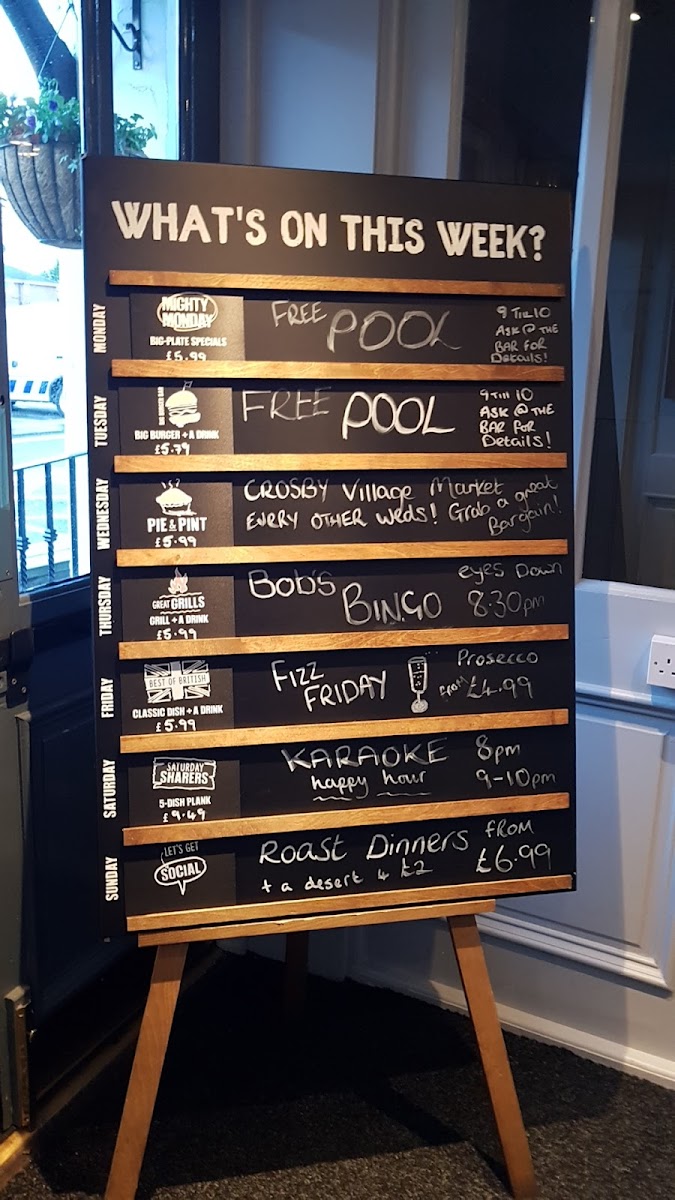 WHAT'S ON THIS WEEK?
MONDAY
MIGHTY
MONDAY
BIG-PLATE SPECIALS
£5.99
FREE POOL
9 Till 10
ASK @ THE
BAR FOR
Details!
TUESDAY
BIG BURGER + A DRINK
£5.79
FREE POOL
9 Till 10
ASK @ THE
BAR FOR
Details!
WEDNESDAY
PIE & PINT
£5.99
CROSBY Village Market
EVERY OTHER Weds! Grab a great
Bargain!
THURSDAY
GREAT GRILLS
GRILL + A DRINK
£5.99
Bob's
BINGO
eyes Down
8:30pm
FRIDAY
BEST OF BRITISH
CLASSIC DISH + A DRINK
£5.99
FIZZ
FRIDAY
Prosecco
FROM £4.99
SATURDAY
SATURDAY
SHARERS
5-DISH PLANK
£9.49
KARAOKE 8pm
happy hour 9-10pm
SUNDAY
LET'S GET
SOCIAL
Roast Dinners FROM
£6.99
+ a desert 4 £2